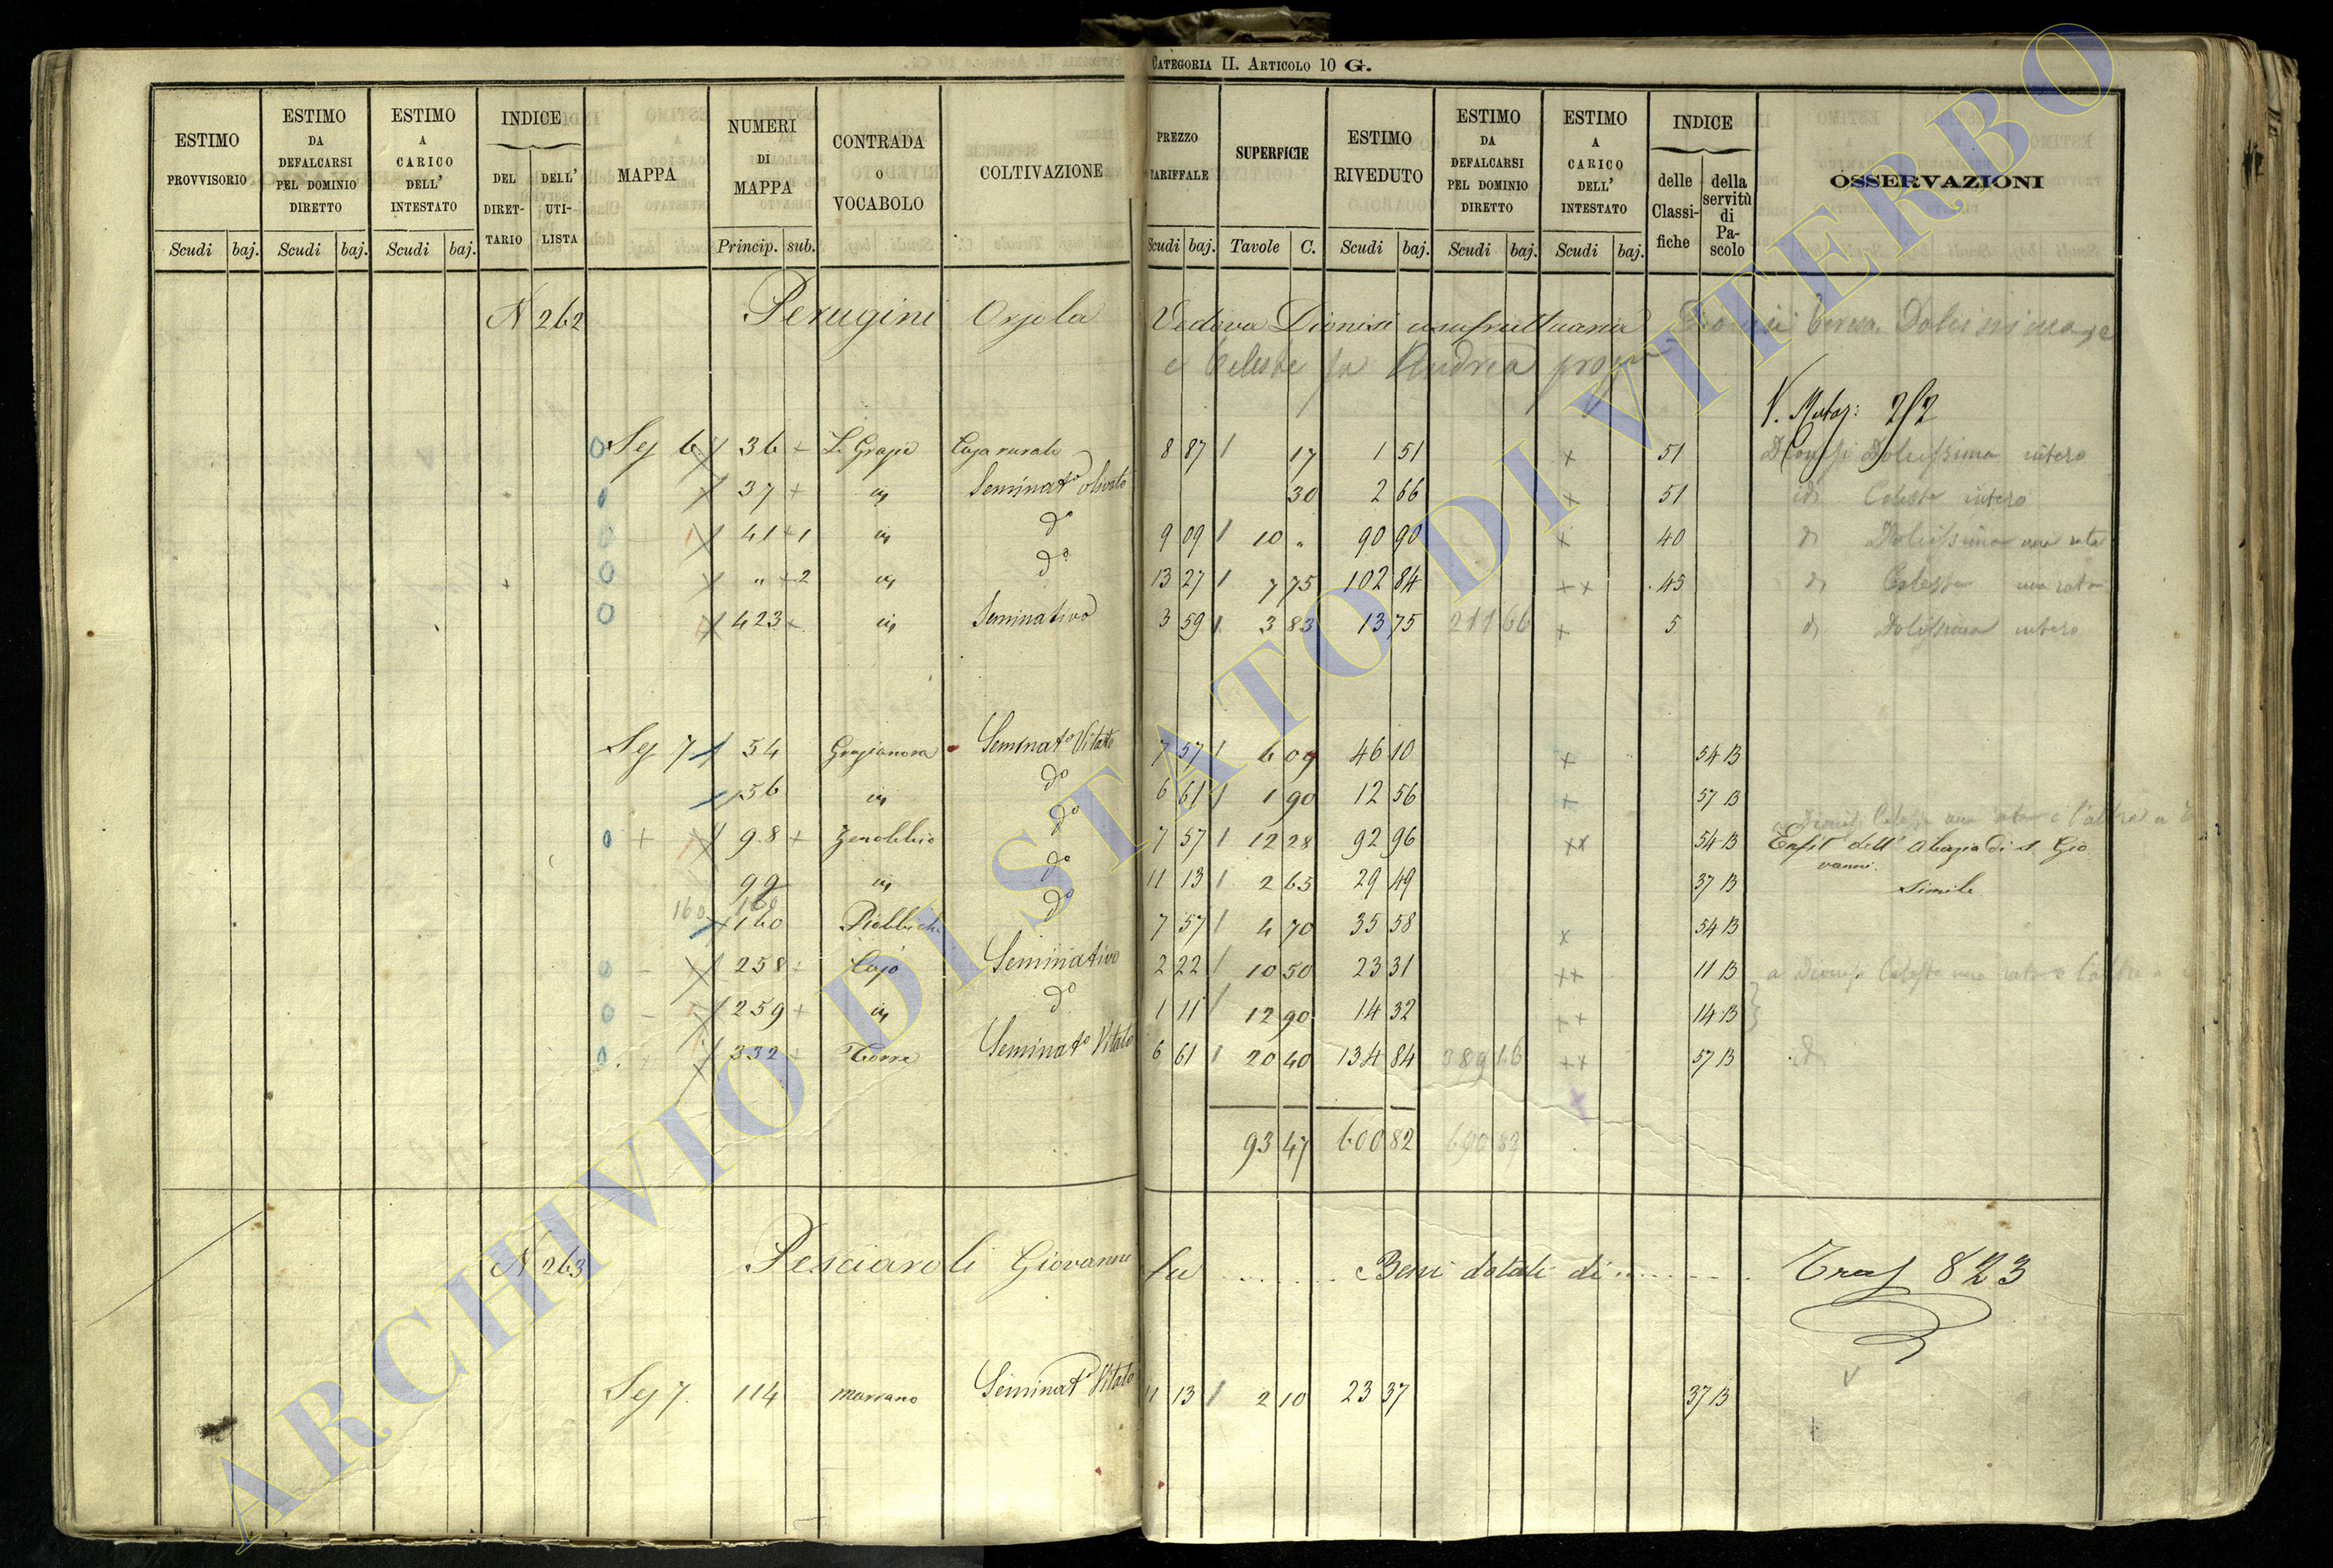 CATEGORIA II. ARTICOLO 10 G.
ESTIMO PROVVISORIO Scudi baj.
ESTIMO DA DEFALCARSI PEL DOMINIO DIRETTO Scudi baj.
ESTIMO A CARICO DELL' INTESTATO Scudi baj.
INDICE DEL DIRET-TARIO DELL' UTI-LISTA
MAPPA
NUMERI DI MAPPA Princip. sub.
CONTRADA O VOCABOLO
COLTIVAZIONE
PREZZO TARIFFALE Scudi baj.
SUPERFICIE Tavole C.
ESTIMO RIVEDUTO Scudi baj.
ESTIMO DA DEFALCARSI PEL DOMINIO DIRETTO Scudi baj.
ESTIMO A CARICO DELL' INTESTATO Scudi baj.
INDICE delle Classi-fiche della servitù di Pa-scolo
OSSERVAZIONI
N 262 Perugini Orsola Vedova Dionisi usufruttuaria Teresa Dolcissima
e Celeste fu Andrea
V. Mutaz: 2/2
Sez 6 36 + Casa rurale 8 87 17 1 51 + 51 Dionisi Dolcissima intero
37 + Seminat° olivato 30 2 66 + 51 Celeste intero
41 + 1 d° 9 09 10 " 90 90 + 40 Dolcissima una rata
" + 2 d° 13 27 7 75 102 84 ++ 45 Celeste una rata
423 + Seminativo 3 59 3 83 13 75 211 66 + 5 Dolcissima intero
Sez 7 54 Seminat° Vitato 7 57 6 09 46 10 + 54 B
56 d° 6 61 1 90 12 56 + 57 B
+ 98 + Zenobbio d° 7 57 12 28 92 96 ++ 54 B Enfit dell' Abazia di S. Gio
vanni
99 d° 11 13 2 65 29 49 37 B Simile
160 160
160 d° 7 57 4 70 35 58 x 54 B
258 Seminativo 2 22 10 50 23 31 ++ 11 B a Dionisi Celeste una rata e l'altra
259 + d° 1 11 12 90 14 32 ++ 14 B
332 Torre Seminat° Vitato 6 61 20 40 134 84 389 16 ++ 57 B
93 47 600 82 600 82
N 263 Pesciaroli Giovanni fu . . . . . . Beni dotali di . . . . . . Tras 823
Sez 7. 114 Marrano Seminat° Vitato 11 13 2 10 23 37 37 B
ARCHIVIO DI STATO DI VITERBO